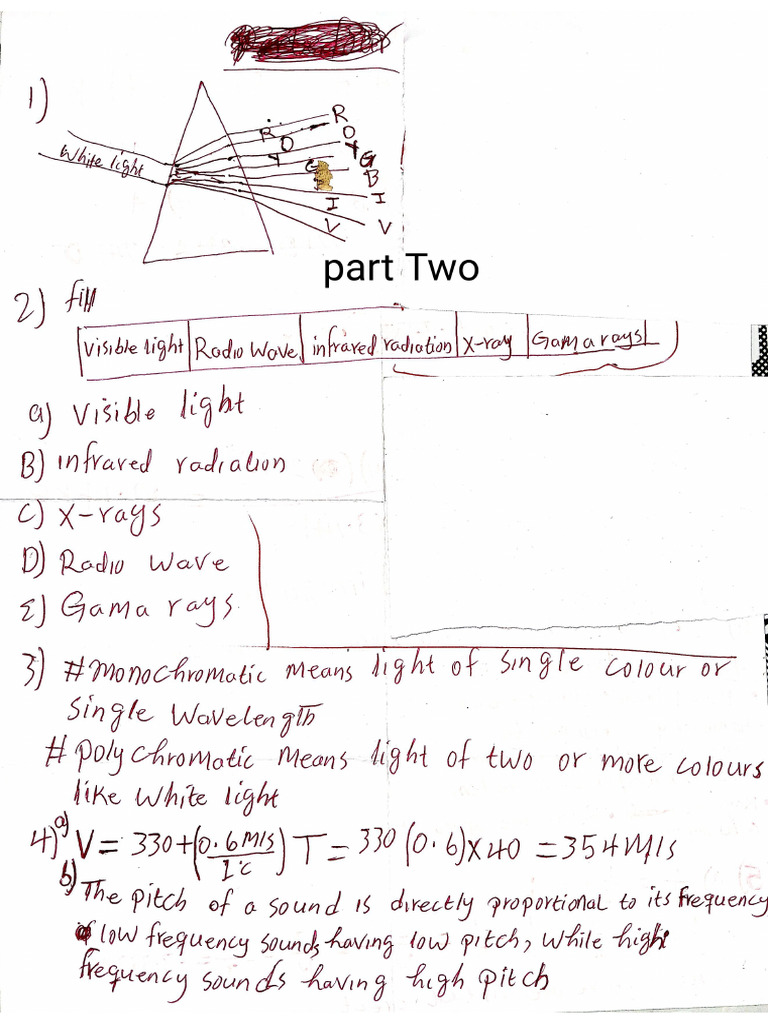 1)
White light
R R
O O
Y Y
G G
B
I I
V V
part Two
2) fill
Visible light Radio Wave infrared radiation X-ray Gama rays
a) Visible light
B) infrared radiation
C) X-rays
D) Radio wave
E) Gama rays
3) # Monochromatic means light of single colour or
single wavelength
# polychromatic means light of two or more colours
like white light
4) a) V = 330 + (0.6 M/s / 1°C) T = 330 (0.6) x 40 = 354 M/s
b) The pitch of a sound is directly proportional to its frequency
low frequency sounds having low pitch, while high
frequency sounds having high pitch